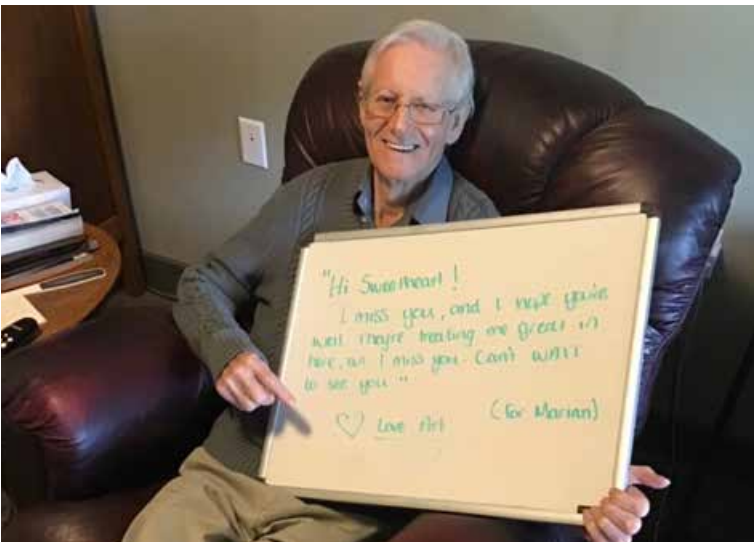 "Hi Sweetheart!
I miss you, and I hope you're
well. They're treating me great in
here, but I miss you. Can't wait
to see you"
(for Marian)
♡ Love Art